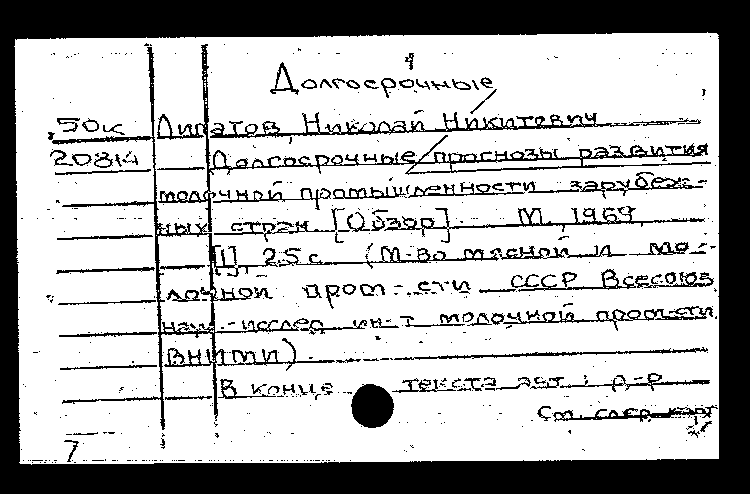 Долгосрочные
50к Липатов, Николай Никитович
20814 Долгосрочные прогнозы развития
молочной промышленности зарубеж-
ных стран [Обзор]. М., 1969
[1], 25 с. (М-во мясной и мо-
лочной пром-сти СССР Всесоюз
науч.-исслед ин-т молочной пром-сти
ВНИМИ).
В конце текста авт.: д-р
См. след. карт
7